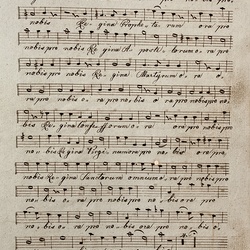 nobis Regina Prophe, ta rum ora pro
nobis pro nobis Regina A posto, lorum o, ra pro
nobis pro nobis Regina Martyrum o, ra o,
ra pro nobis o, ra pro nobis o ra pro nobis pro no,
bis Regina Confessorum o, ra ora pro nobis pro
no, bis Regina Virgi, num ora pro no, bis ora pro
nobis Regina Sanctorum omnium o, ra pro nobis pro
no, bis o, ra pro nobis pro no, bis o, ra pro
no, bis o, ra pro nobis pro no, bis